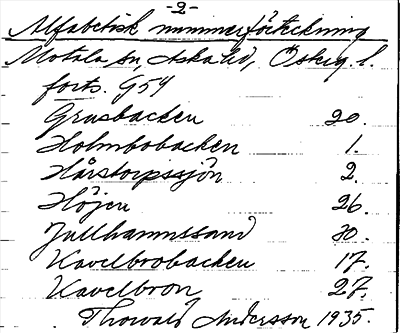 -2-
Alfabetisk nummerförteckning
Motala sn Aska hd, Östug. l.
forts. G54
Grusbacken 20.
Holmbobacken 1.
Hårstorpssjön 2.
Höjen 26.
Jullhamnssand 30.
Kavelbrobacken 17.
Kavelbron 27.
Thorvald Andersson 1935.